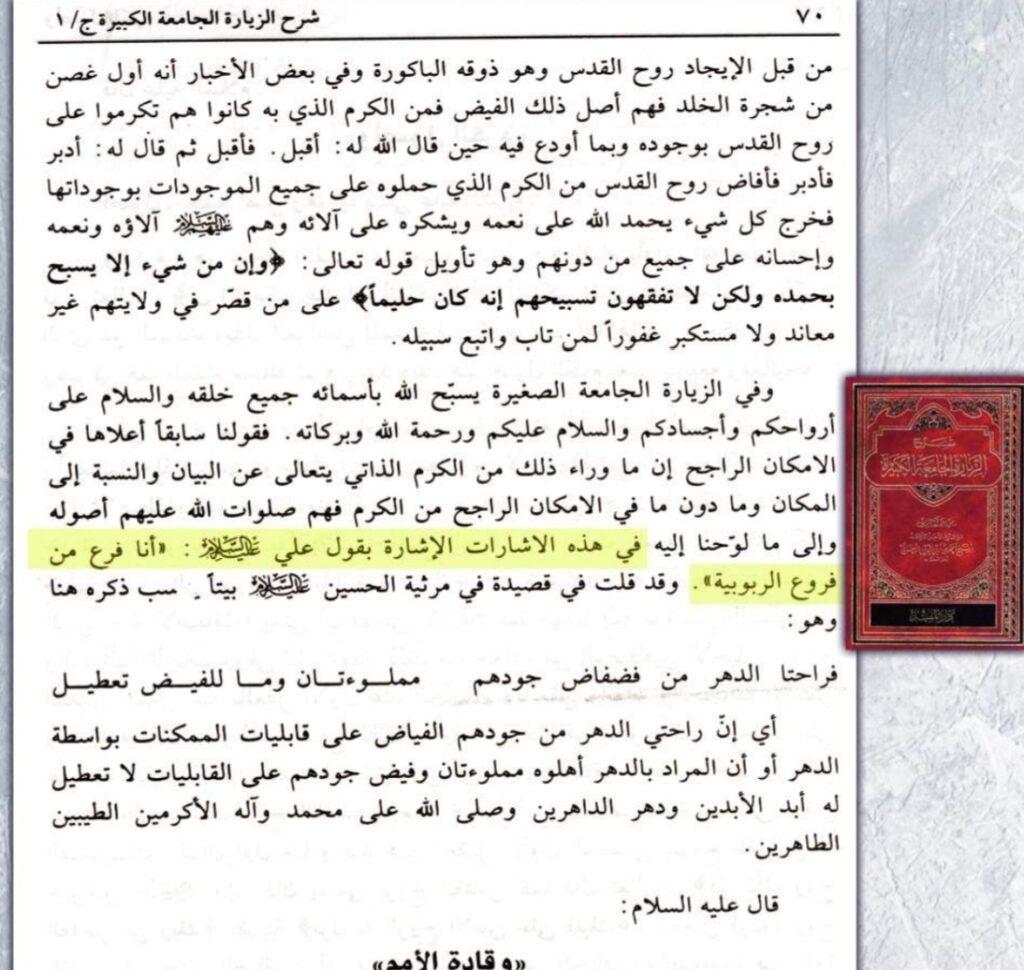 ٧٠
شرح الزيارة الجامعة الكبيرة ج/ ١
من قبل الإيجاد روح القدس وهو ذوقه الباكورة وفي بعض الأخبار أنه أول غصن
من شجرة الخلد فهم أصل ذلك الفيض فمن الكرم الذي به كانوا هم تكرموا على
روح القدس بوجوده وبما أودع فيه حين قال الله له: أقبل. فأقبل ثم قال له: أدبر
فأدبر فأفاض روح القدس من الكرم الذي حملوه على جميع الموجودات بوجوداتها
فخرج كل شيء يحمد الله على نعمه ويشكره على آلائه وهم عليهم السلام آلاؤه ونعمه
وإحسانه على جميع من دونهم وهو تأويل قوله تعالى: ﴿وإن من شيء إلا يسبح
بحمده ولكن لا تفقهون تسبيحهم إنه كان حليماً﴾ على من قصّر في ولايتهم غير
معاند ولا مستكبر غفوراً لمن تاب واتبع سبيله.
وفي الزيارة الجامعة الصغيرة يسبّح الله بأسمائه جميع خلقه والسلام على
أرواحكم وأجسادكم والسلام عليكم ورحمة الله وبركاته. فقولنا سابقاً أعلاها في
الامكان الراجح إن ما وراء ذلك من الكرم الذاتي يتعالى عن البيان والنسبة إلى
المكان وما دون ما في الامكان الراجح من الكرم فهم صلوات الله عليهم أصوله
وإلى ما لوّحنا إليه في هذه الاشارات الإشارة بقول علي عليه السلام: «أنا فرع من
فروع الربوبية». وقد قلت في قصيدة في مرثية الحسين عليه السلام بيتاً سب ذكره هنا
وهو:
فراحتا الدهر من فضفاض جودهم مملوءتان وما للفيض تعطيل
أي إنّ راحتي الدهر من جودهم الفياض على قابليات الممكنات بواسطة
الدهر أو أن المراد بالدهر أهلوه مملوءتان وفيض جودهم على القابليات لا تعطيل
له أبد الأبدين ودهر الداهرين وصلى الله على محمد وآله الأكرمين الطيبين
الطاهرين.
قال عليه السلام:
«وقادة الأمم»
شرح
الزيارة الجامعة الكبيرة